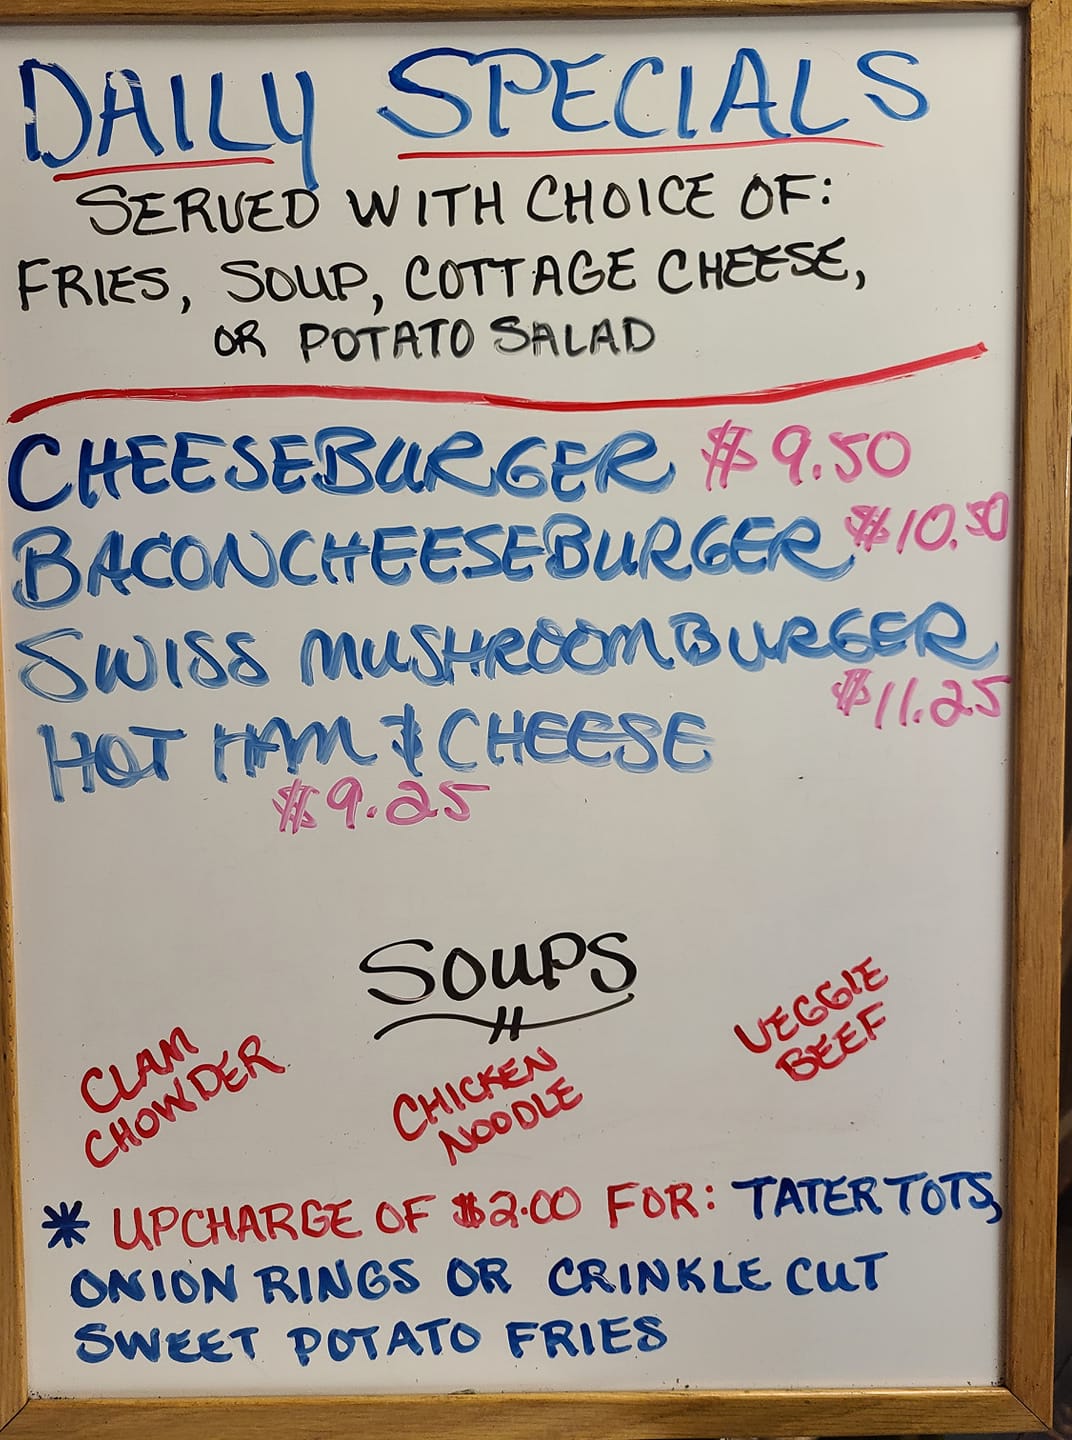 DAILY SPECIALS
SERVED WITH CHOICE OF:
FRIES, SOUP, COTTAGE CHEESE,
OR POTATO SALAD
CHEESEBURGER $9.50
BACONCHEESEBURGER $10.50
SWISS MUSHROOMBURGER
$11.25
HOT HAM & CHEESE
$9.25
SOUPS
CLAM
CHOWDER
CHICKEN
NOODLE
VEGGIE
BEEF
* UPCHARGE OF $2.00 FOR: TATER TOTS,
ONION RINGS OR CRINKLE CUT
SWEET POTATO FRIES